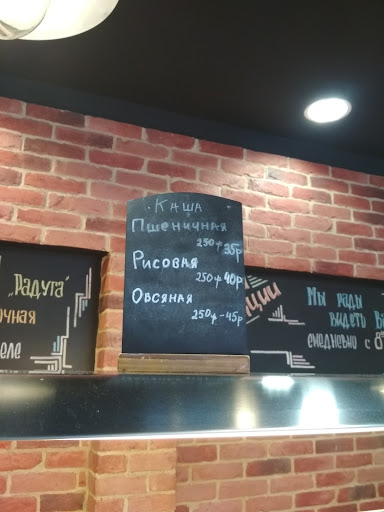 Каша
Пшеничная
250г 35р
Рисовая
250г 40р
Овсяная
250г - 45р
„Радуга“
очная
еле
ции
Мы рады
видеть
ежедневно с 8